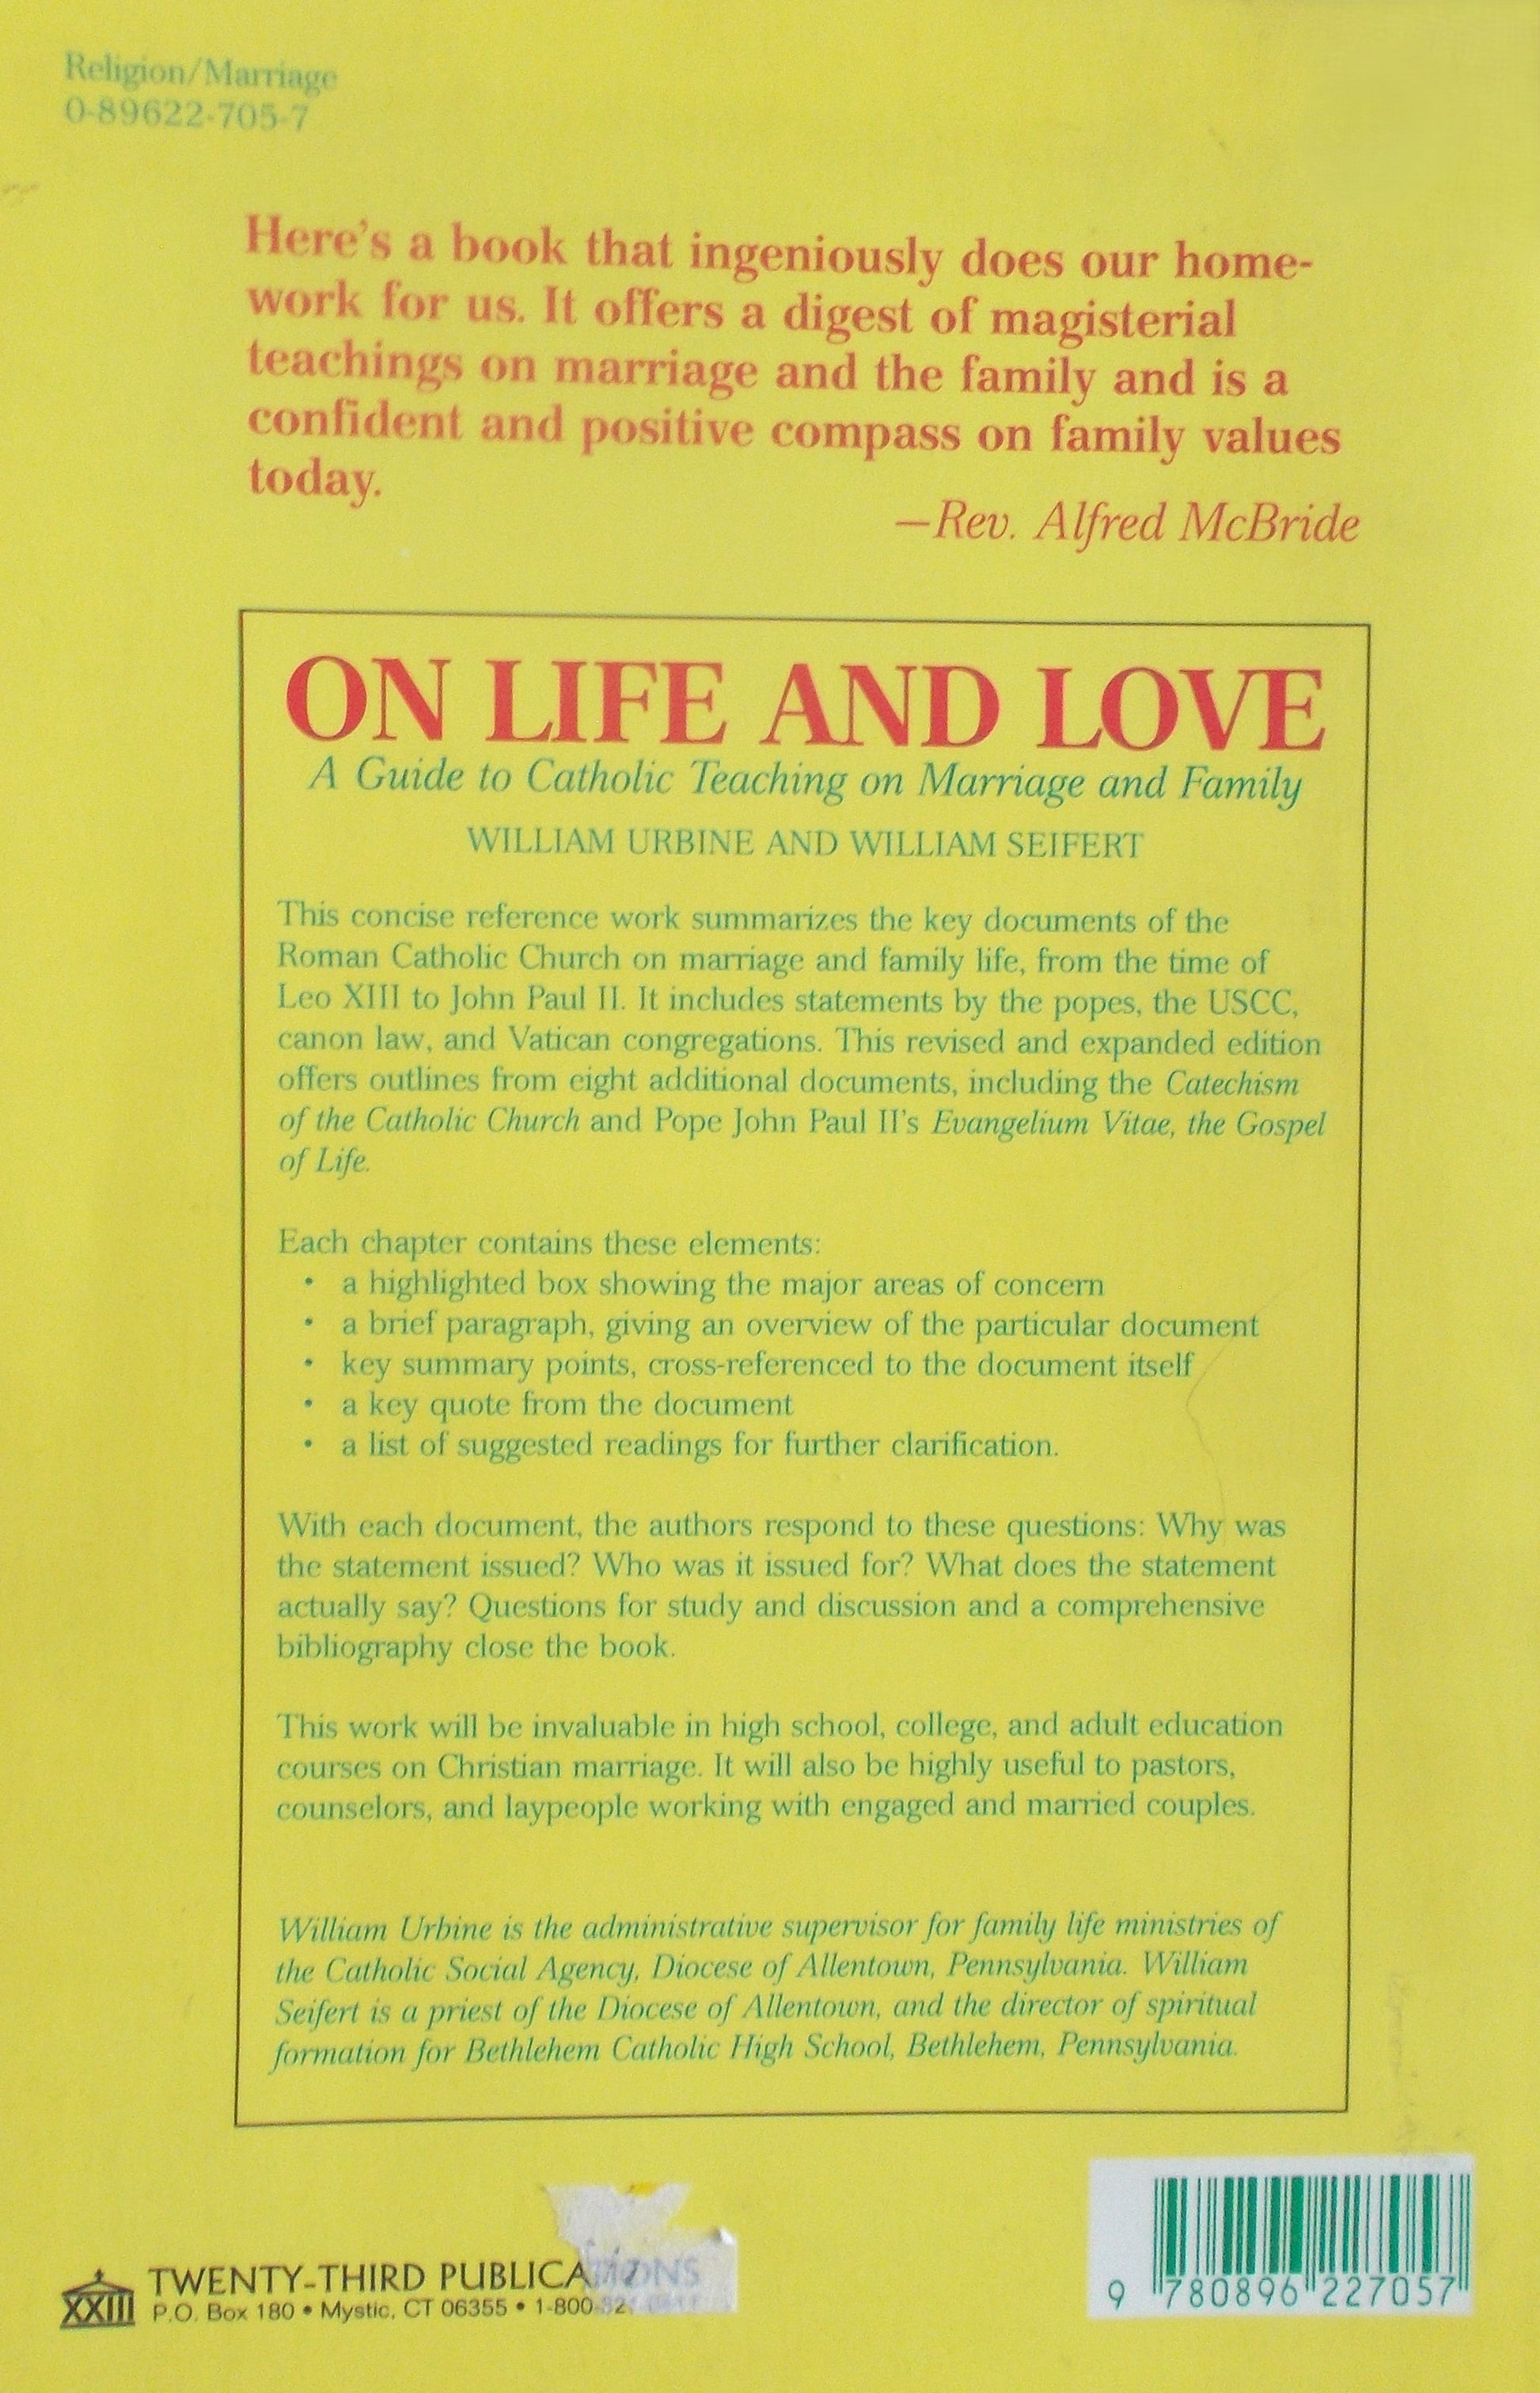 Religion/Marriage
0-89622-705-7
Here's a book that ingeniously does our home-
work for us. It offers a digest of magisterial
teachings on marriage and the family and is a
confident and positive compass on family values
today.
—Rev. Alfred McBride
ON LIFE AND LOVE
A Guide to Catholic Teaching on Marriage and Family
WILLIAM URBINE AND WILLIAM SEIFERT
This concise reference work summarizes the key documents of the
Roman Catholic Church on marriage and family life, from the time of
Leo XIII to John Paul II. It includes statements by the popes, the USCC,
canon law, and Vatican congregations. This revised and expanded edition
offers outlines from eight additional documents, including the Catechism
of the Catholic Church and Pope John Paul II's Evangelium Vitae, the Gospel
of Life.
Each chapter contains these elements:
• a highlighted box showing the major areas of concern
• a brief paragraph, giving an overview of the particular document
• key summary points, cross-referenced to the document itself
• a key quote from the document
• a list of suggested readings for further clarification.
With each document, the authors respond to these questions: Why was
the statement issued? Who was it issued for? What does the statement
actually say? Questions for study and discussion and a comprehensive
bibliography close the book.
This work will be invaluable in high school, college, and adult education
courses on Christian marriage. It will also be highly useful to pastors,
counselors, and laypeople working with engaged and married couples.
William Urbine is the administrative supervisor for family life ministries of
the Catholic Social Agency, Diocese of Allentown, Pennsylvania. William
Seifert is a priest of the Diocese of Allentown, and the director of spiritual
formation for Bethlehem Catholic High School, Bethlehem, Pennsylvania.
XXIII
TWENTY-THIRD PUBLICATIONS
P.O. Box 180 • Mystic, CT 06355 • 1-800
9 780896 227057